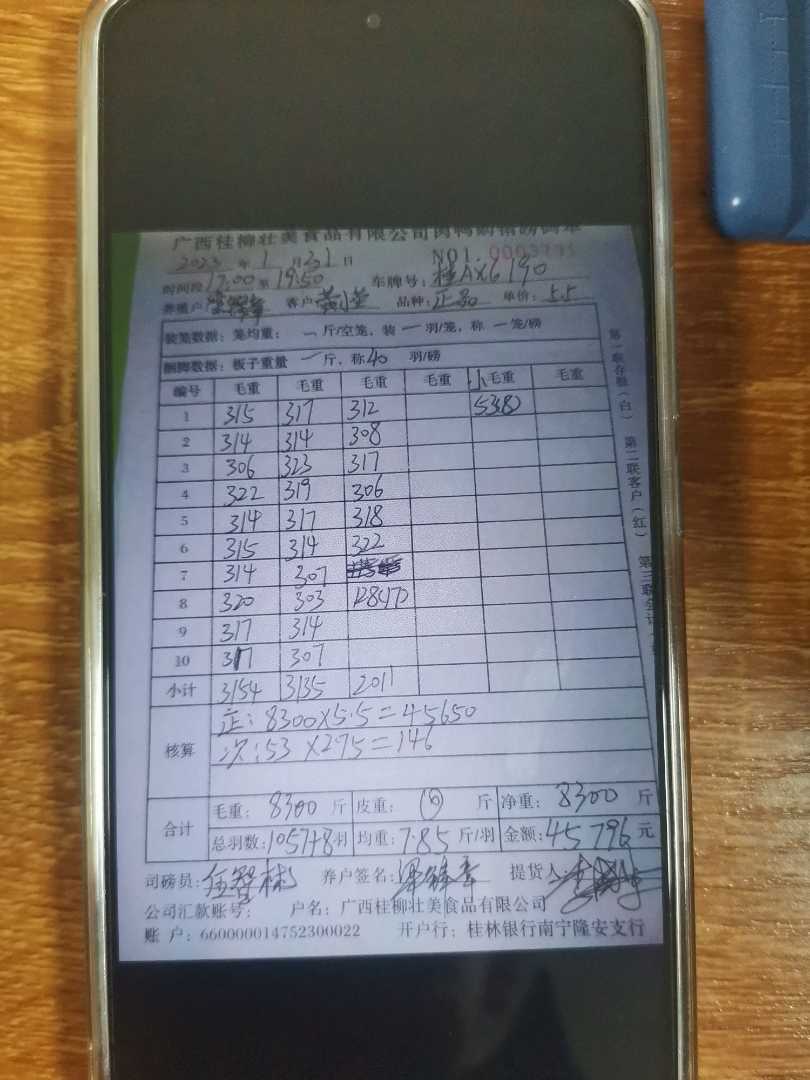 广西桂柳壮美食品有限公司肉鸭销售磅码单
2023 年 1 月 31 日 NO1. 000
时间段 17:00 至 19:50 车牌号: 桂AX6190
养殖户 客户 品种: 正品 单价: 5.5
装笼数据: 笼均重: 一 斤/空笼、装 一 羽/笼, 称 一 笼/磅
捆脚数据: 板子重量 一 斤、称 40 羽/磅
编号 毛重 毛重 毛重 毛重 小毛重 毛重
1 315 317 312 53(8)
2 314 314 308
3 306 323 317
4 322 319 306
5 314 317 318
6 315 314 322
7 314 307
8 320 303 (28470
9 317 314
10 317 307
小计 3154 3135 2011
核算
正: 8300×5.5=45650
次: 53×2.75=146
合计
毛重: 8300 斤 皮重: 斤 净重: 8300 斤
总羽数: 1057+8 羽 均重: 7.85 斤/羽 金额: 45796 元
司磅员: 养户签名: 提货人:
公司汇款账号: 户名: 广西桂柳壮美食品有限公司
账 户: 660000014752300022 开户行: 桂林银行南宁隆安支行
第一联存根(白) 第二联客户(红) 第三联会计